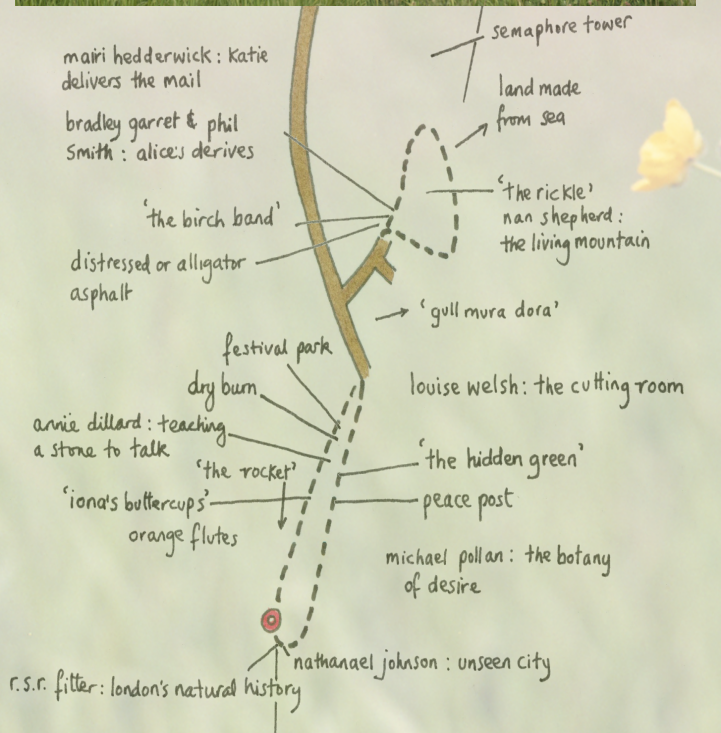 semaphore tower
mairi hedderwick : Katie
delivers the mail
land made
from sea
bradley garret & phil
Smith : alice's derives
'the rickle'
nan shepherd :
the living mountain
'the birch band'
distressed or alligator
asphalt
'gull mura dora'
festival park
dry burn
louise welsh : the cutting room
annie dillard : teaching
a stone to talk
'the hidden green'
'the rocket'
'iona's buttercups'
peace post
orange flutes
michael pollan : the botany
of desire
nathanael johnson : unseen city
r.s.r. fitter : london's natural history